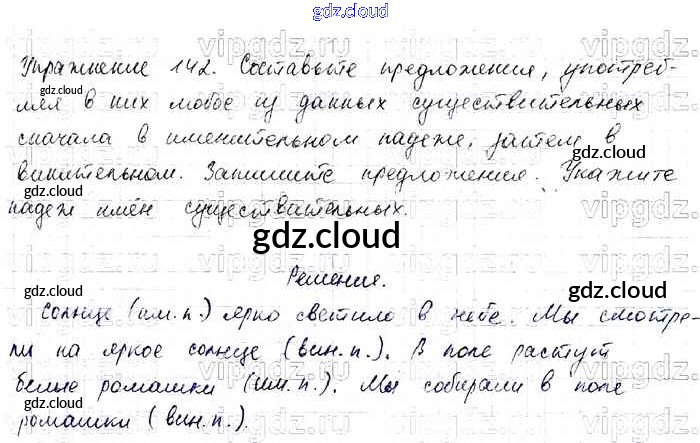 gdz.cloud
Упражнение 142. Составьте предложения, употреб-
ляя в них любое из данных существительных
сначала в именительном падеже, затем в
винительном. Запишите предложения. Укажите
падеж имён существительных.
gdz.cloud
Решение.
Солнце (им.п.) ярко светило в небе. Мы смотре-
ли на яркое солнце (вин.п.). В поле растут
белые ромашки (им.п.). Мы собирали в поле
ромашки (вин.п.).